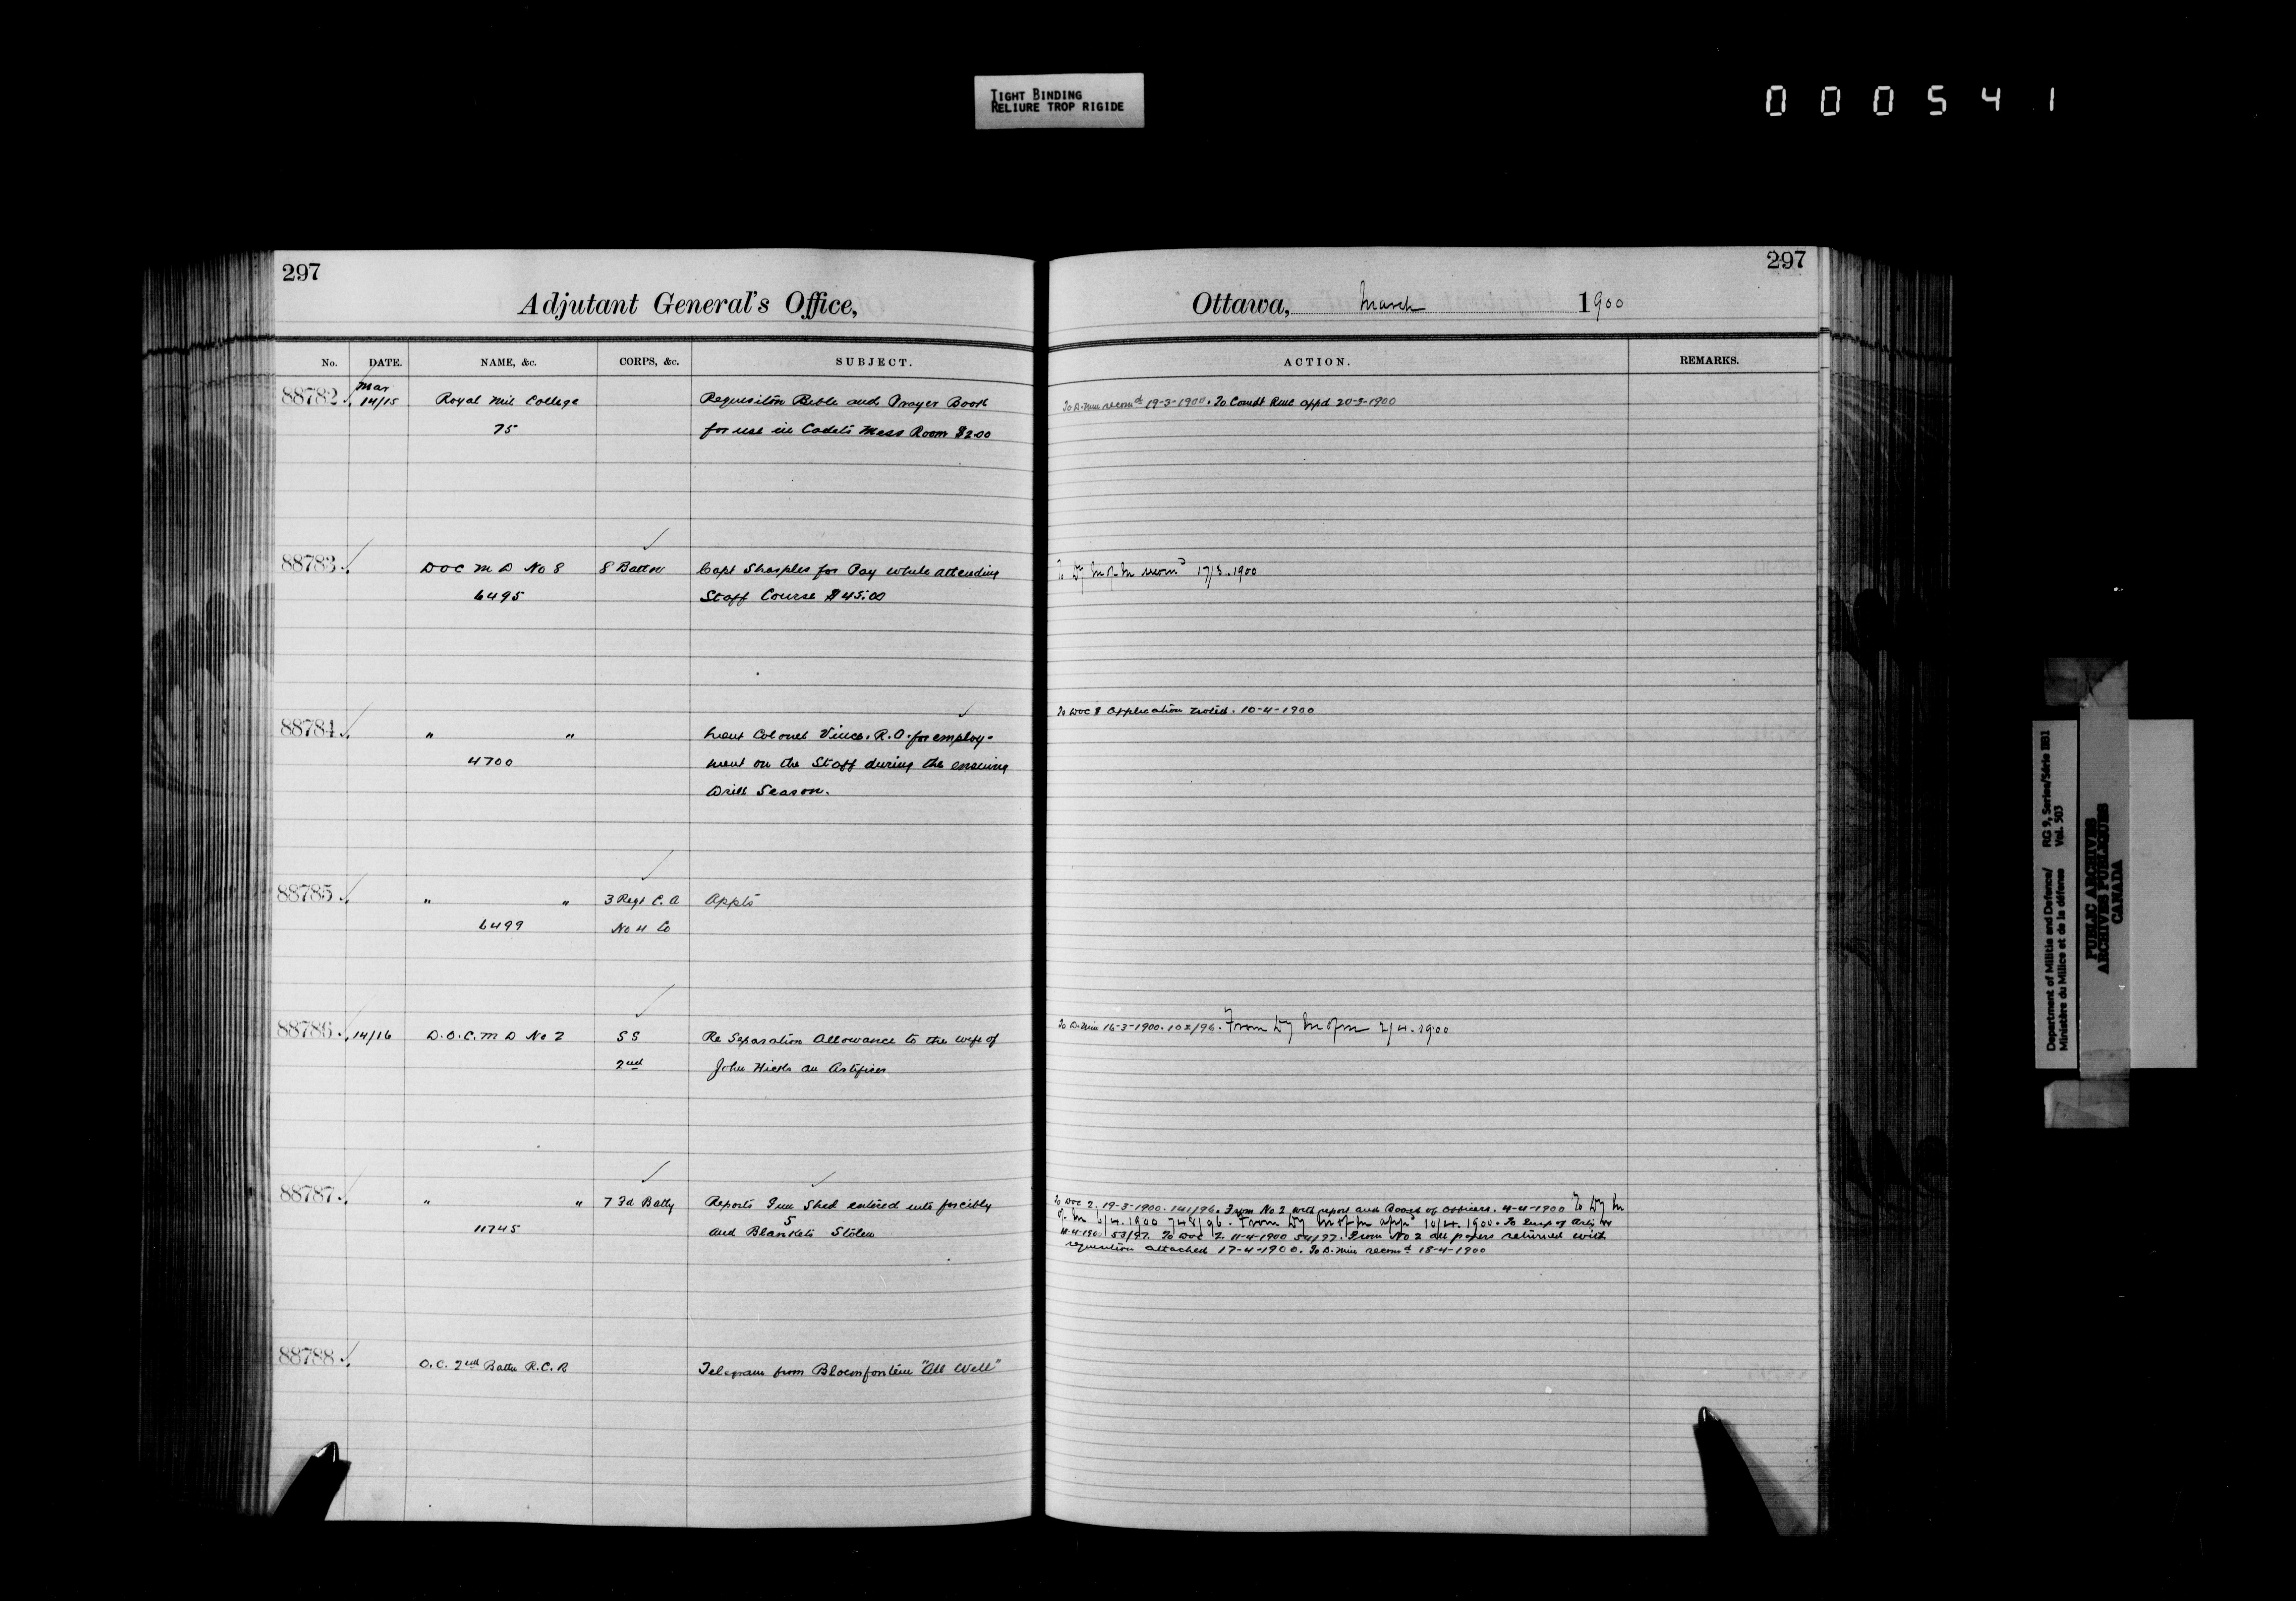 TIGHT BINDING
RELIURE TROP RIGIDE
000541
297
Adjutant General's Office,
No. DATE. NAME, &c. CORPS, &c. SUBJECT.
88782 Mar 14/15 Royal Mil College Requisition Bible and Prayer Book
75 for use in Cadets Mess Room $2.00
88783 DOC M D No 8 8 Batton Capt Sharples for Pay while attending
6495 Staff Course $45.00
88784 " " Lieut Colonel Vince. R.O. for employ-
4700 ment on the Staff during the ensuing
Drill Season.
88785 " " 3 Regt C. A Appts
6499 No 4 Co
88786 14/16 D.O.C. M D No 2 S S Re Separation Allowance to the wife of
2nd John Hicks an Artificer
88787 " " 7 Fd Batty Reports Gun Shed entered into forcibly
11745 and 5 Blankets Stolen
88788 O.C. 2nd Battn R.C.R Telegram from Bloemfontein "All Well"
297
Ottawa, March 1900
ACTION. REMARKS.
To D. Min recomd 19-3-1900. To Comdt RMC appd 20-3-1900
To Dy M of M recomd 17/3.1900
To DOC 8 Application noted. 10-4-1900
To D. Min 16-3-1900. 102/96. From Dy M of M 2/4.1900
To DOC 2. 19-3-1900. 141/96. From No 2 with report and Board of Officers. 4-4-1900 To Dy M
of M 6/4.1900 748/96. From Dy M of M appd 10/4.1900. To Insp of Arty
11-4-190 53/97. To DOC 2 11-4-1900 54/97. From No 2 all papers returned with
requisition attached 17-4-1900. To D. Min recomd 18-4-1900
Department of Militia and Defence/ RG 9, Series/Série II B1
Ministère du Milice et de la défense Vol. 503
PUBLIC ARCHIVES
ARCHIVES PUBLIQUES
CANADA